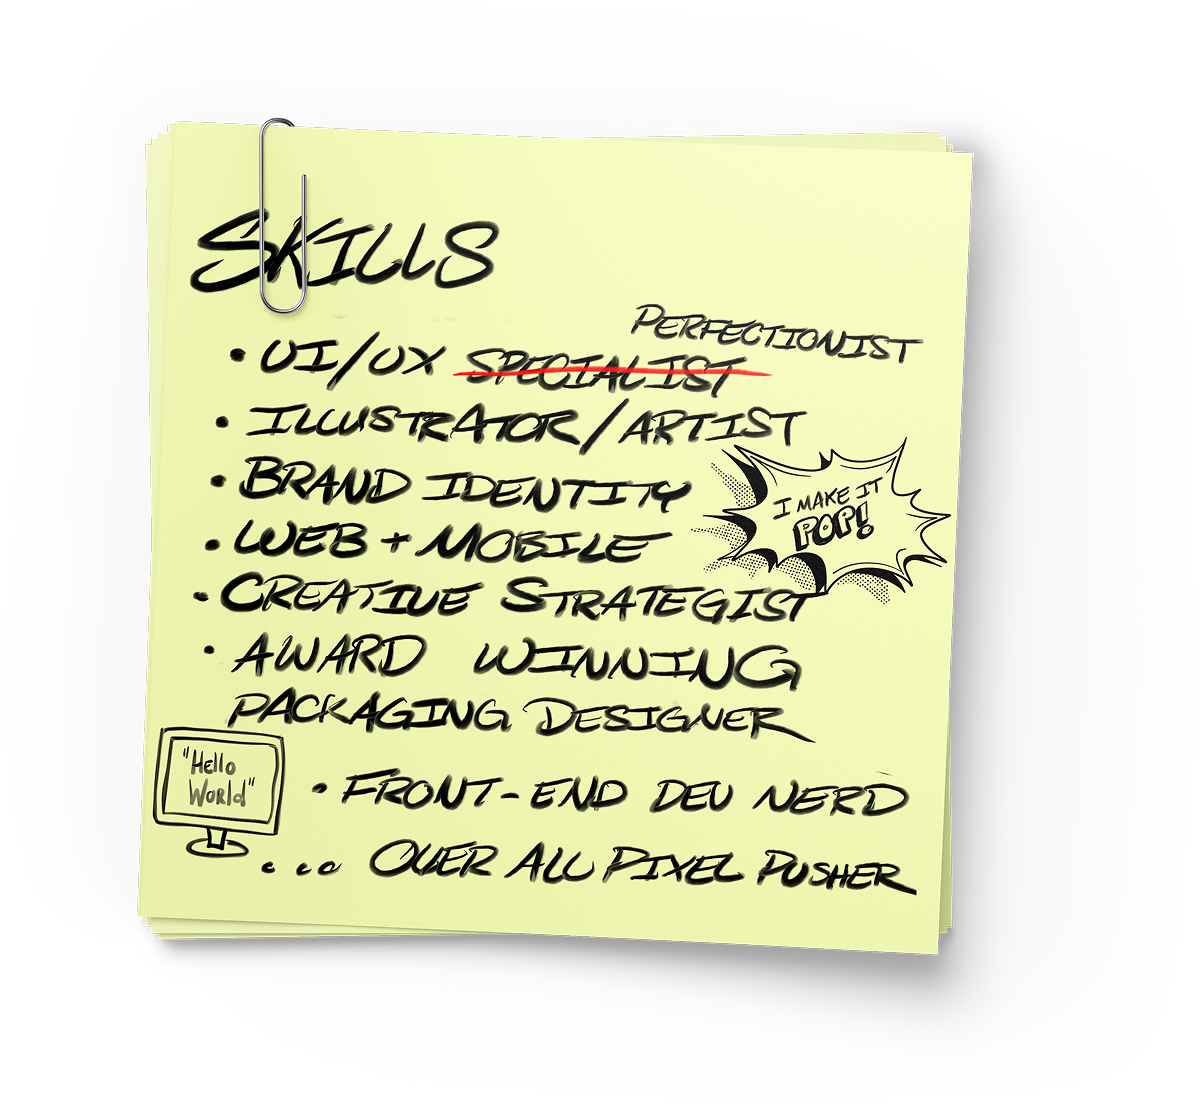 SKILLS
PERFECTIONIST
• UI/UX SPECIALIST
• ILLUSTRATOR/ARTIST
• BRAND IDENTITY
I MAKE IT
POP!
• WEB + MOBILE
• CREATIVE STRATEGIST
• AWARD WINNING
PACKAGING DESIGNER
"Hello
World"
• FRONT-END DEV NERD
... OVER ALL PIXEL PUSHER